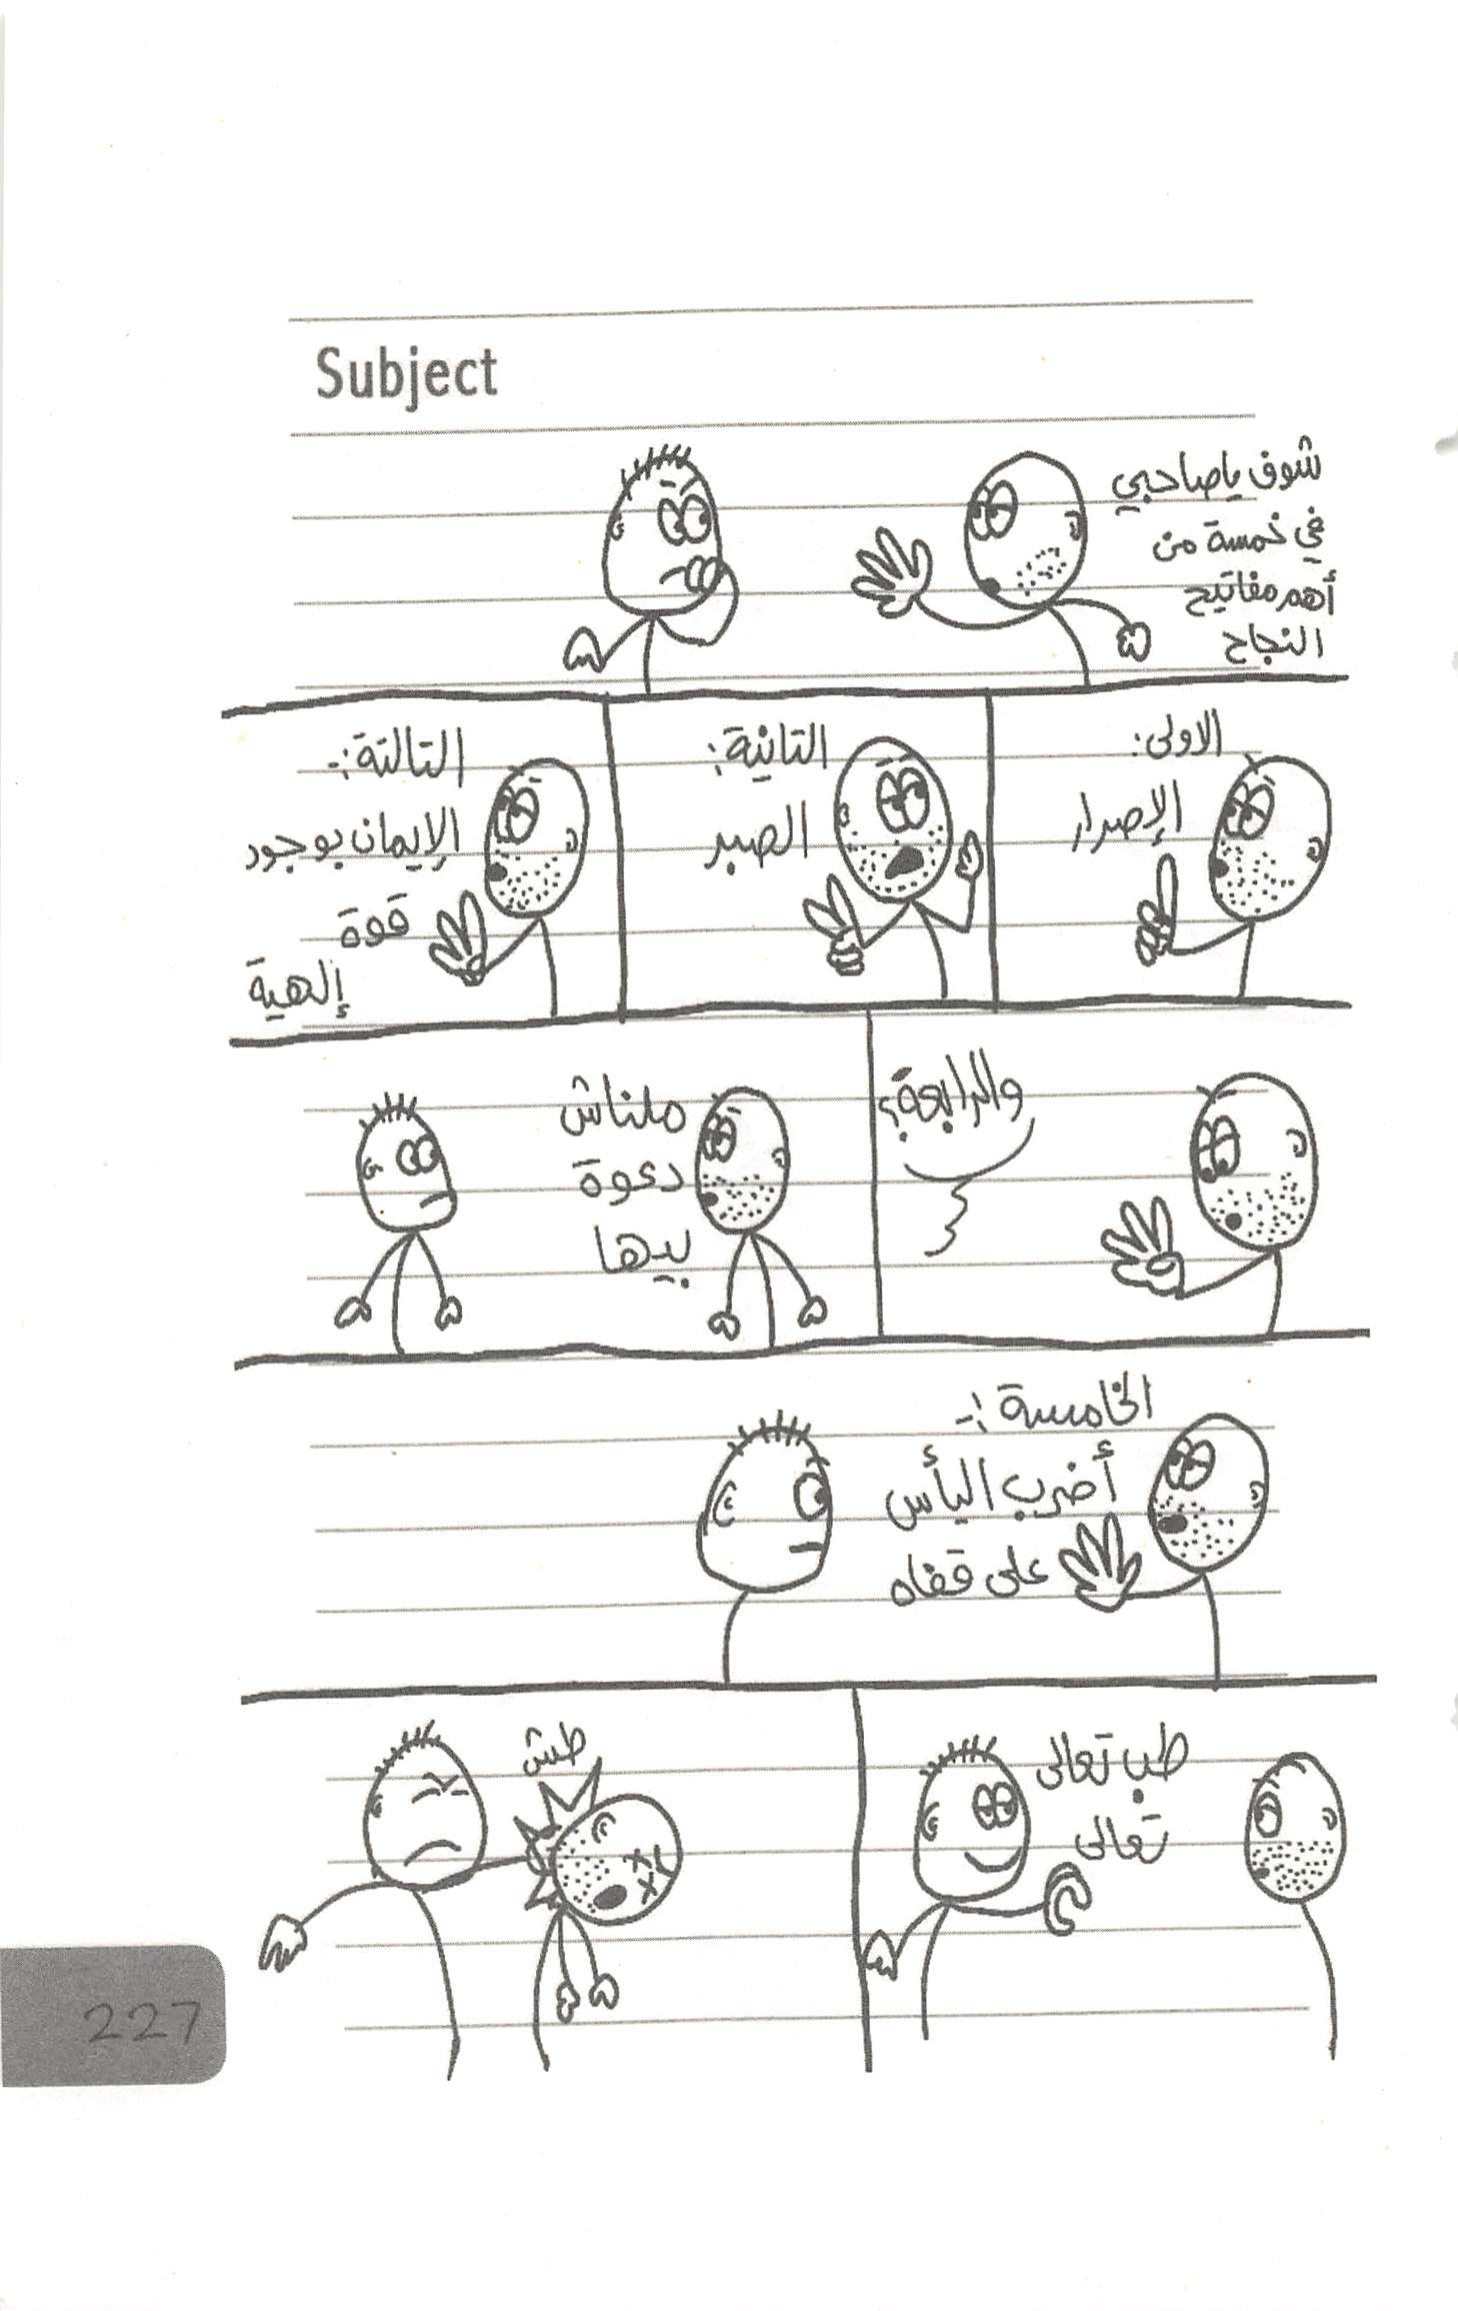 Subject
شوف يا صاحبي
في خمسة من
أهم مفاتيح
النجاح
الاولى:
الإصرار
التانية:
الصبر
التالتة:-
الإيمان بوجود
قوة
إلهية
والرابعة؟
ملناش
دعوة
بيها
الخامسة:-
أضرب اليأس
على قفاه
طب تعالى
تعالى
طش
227